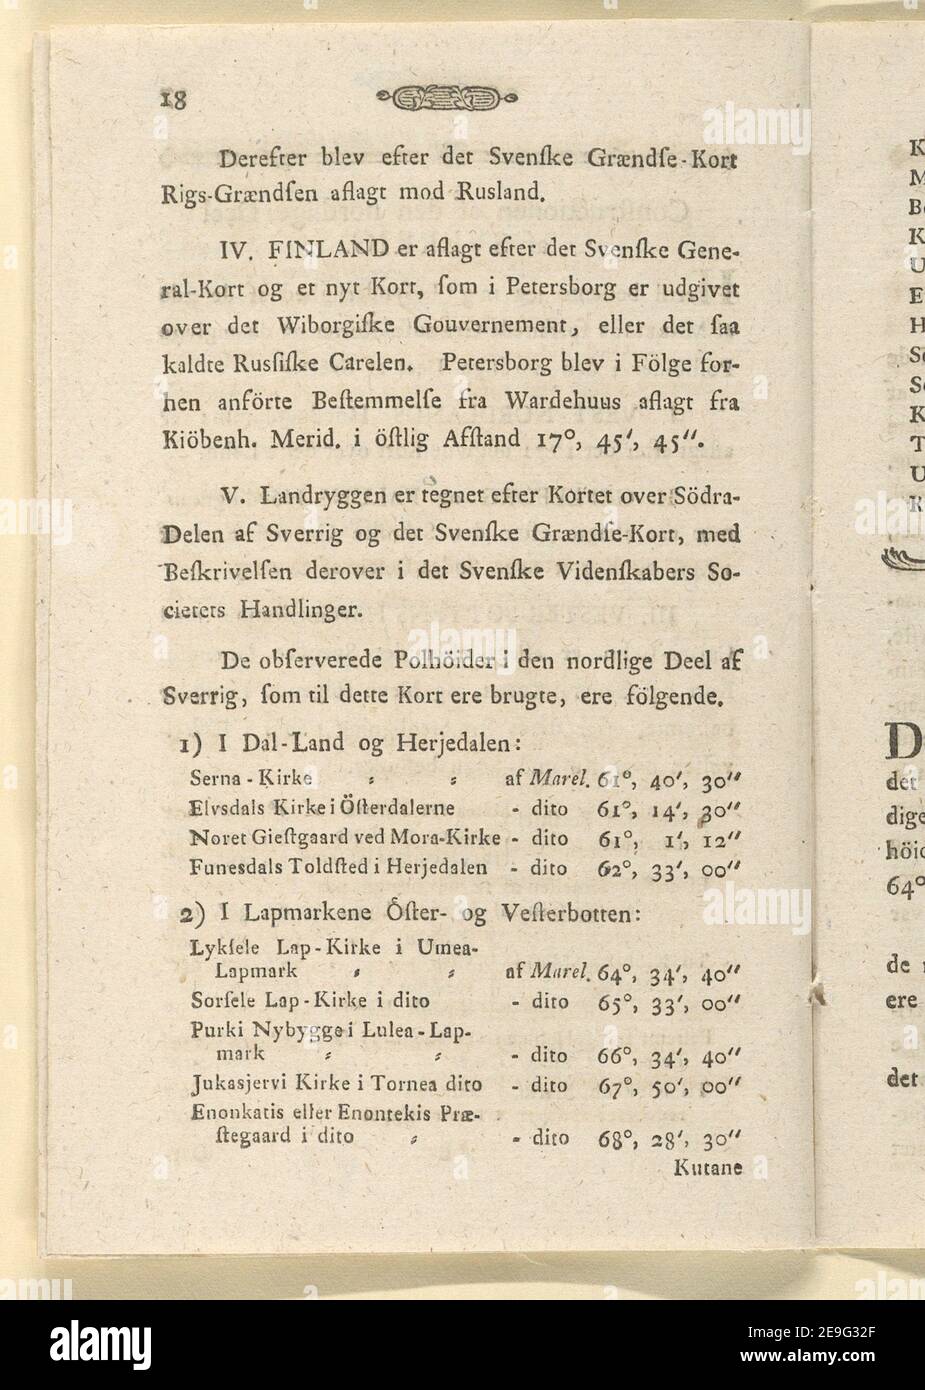 18
Derefter blev efter det Svenſke Grændſe-Kort
Rigs-Grændſen aflagt mod Rusland.
IV. FINLAND er aflagt efter det Svenſke Gene-
ral-Kort og et nyt Kort, ſom i Petersborg er udgivet
over det Wiborgiſke Gouvernement, eller det ſaa
kaldte Rusſiſke Carelen. Petersborg blev i Fölge for-
hen anförte Beſtemmelſe fra Wardehuus aflagt fra
Kiöbenh. Merid. i öſtlig Afſtand 17°, 45′, 45″.
V. Landryggen er tegnet efter Kortet over Södra-
Delen af Sverrig og det Svenſke Grændſe-Kort, med
Beſkrivelſen derover i det Svenſke Videnſkabers So-
cietets Handlinger.
De obſerverede Polhöider i den nordlige Deel af
Sverrig, ſom til dette Kort ere brugte, ere fölgende.
1) I Dal-Land og Herjedalen:
Serna-Kirke ⸗ ⸗ af Marel. 61°, 40′, 30″
Elvsdals Kirke i Öſterdalerne - dito 61°, 14′, 30″
Noret Gieſtgaard ved Mora-Kirke - dito 61°, 1′, 12″
Funesdals Toldſted i Herjedalen - dito 62°, 33′, 00″
2) I Lapmarkene Öſter- og Veſterbotten:
Lykſele Lap-Kirke i Umea-
Lapmark ⸗ ⸗ af Marel. 64°, 34′, 40″
Sorſele Lap-Kirke i dito - dito 65°, 33′, 00″
Purki Nybygge i Lulea-Lap-
mark ⸗ ⸗ - dito 66°, 34′, 40″
Jukasjervi Kirke i Tornea dito - dito 67°, 50′, 00″
Enonkatis eller Enontekis Præ-
ſtegaard i dito ⸗ - dito 68°, 28′, 30″
Kutane
K
M
Be
K
U
E
H
Se
Se
K
T
U
R
D
det
dige
höid
64°
de
ere
det
alamy
alamy
Image ID: 2E9G32F
www.alamy.com